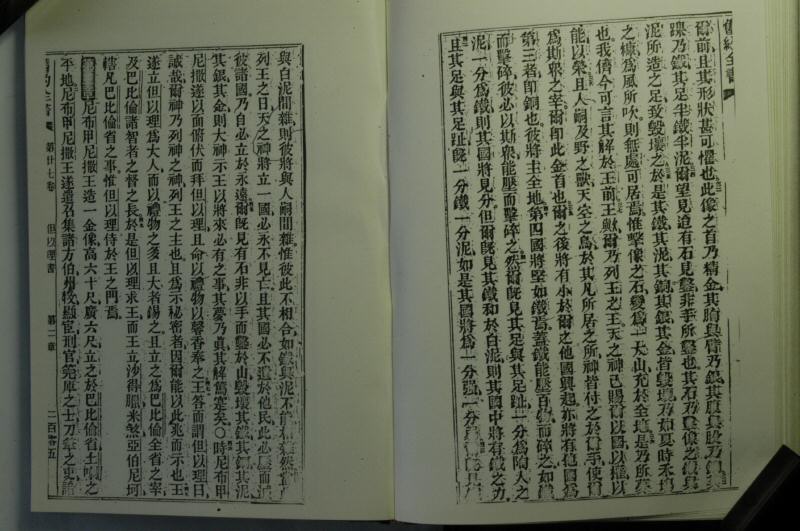 舊約全書
爾前且其形狀甚可懼也此像之首乃精金其胸與臂乃銀其腹與股乃銅其
腿乃鐵其足半鐵半泥爾望見迨有石見鑿非手所鑿也其石乃擊像之鐵與
泥所造之足致毀壞之於是其鐵其泥其銅其銀其金皆毀壞乃如夏時禾場
之糠為風所吹則無處可居焉惟擊像之石變為一大山充於全地是乃所夢
也我儕今可言其解於王前王歟爾乃列王之王天之神已賜爾以國以權以
能以榮且人嗣及野之獸天空之鳥於其凡所居之所神皆付之於爾手使爾
為斯眾之宰爾即此金首也爾之後將有小於爾之他國興起亦將有他國為
第三者即銅也彼將主全地第四國將堅如鐵焉蓋鐵能壓百物而碎之如鐵
而擊碎彼必以斯眾能壓而擊碎之然爾既見其足與其足趾一分為陶人之
泥一分為鐵則其國將見分但爾既見其鐵和於白泥則其國中將有鐵之力
且其足與其足趾既一分鐵一分泥如是其國將為一分强一分
與白泥間雜則彼將與人嗣間雜惟彼此不相合如鐵與泥不能
列王之日天之神將立一國必永不見亡且其國必不遺於他民此必壓而滅
彼諸國乃自必立於永遠爾既見有石非以手而鑿於山毀壞其鐵其銅其泥
其銀其金則大神示王以將來必有之事其夢乃真其解篤定矣〇時尼布甲
尼撒遂以面俯伏而拜但以理且命以禮物以馨香奉之王答而謂但以理曰
誠哉爾神乃列神之神列王之主也且為示秘密者因爾能以此兆而示也王
遂立但以理為大人而以禮物之多且大者錫之且立之為巴比倫全省之宰
及巴比倫諸智者之督之長於是但以理求王而王立沙得臘米煞亞伯尼坷
轄凡巴比倫省之事惟但以理侍於王之門焉
尼布甲尼撒王造一金像高六十尺廣六尺立之於巴比倫省土喇之
平地尼布甲尼撒王遂遣召集諸方伯州牧顯宦刑官筦庫之士
舊約全書 第廿七卷 但以理書 第二章 二百零五